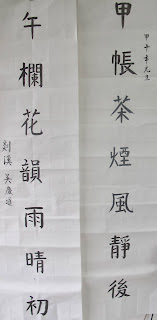 甲帳茶煙風靜後
甲午季元旦
午欄花韻雨晴初
剡溪吳慶